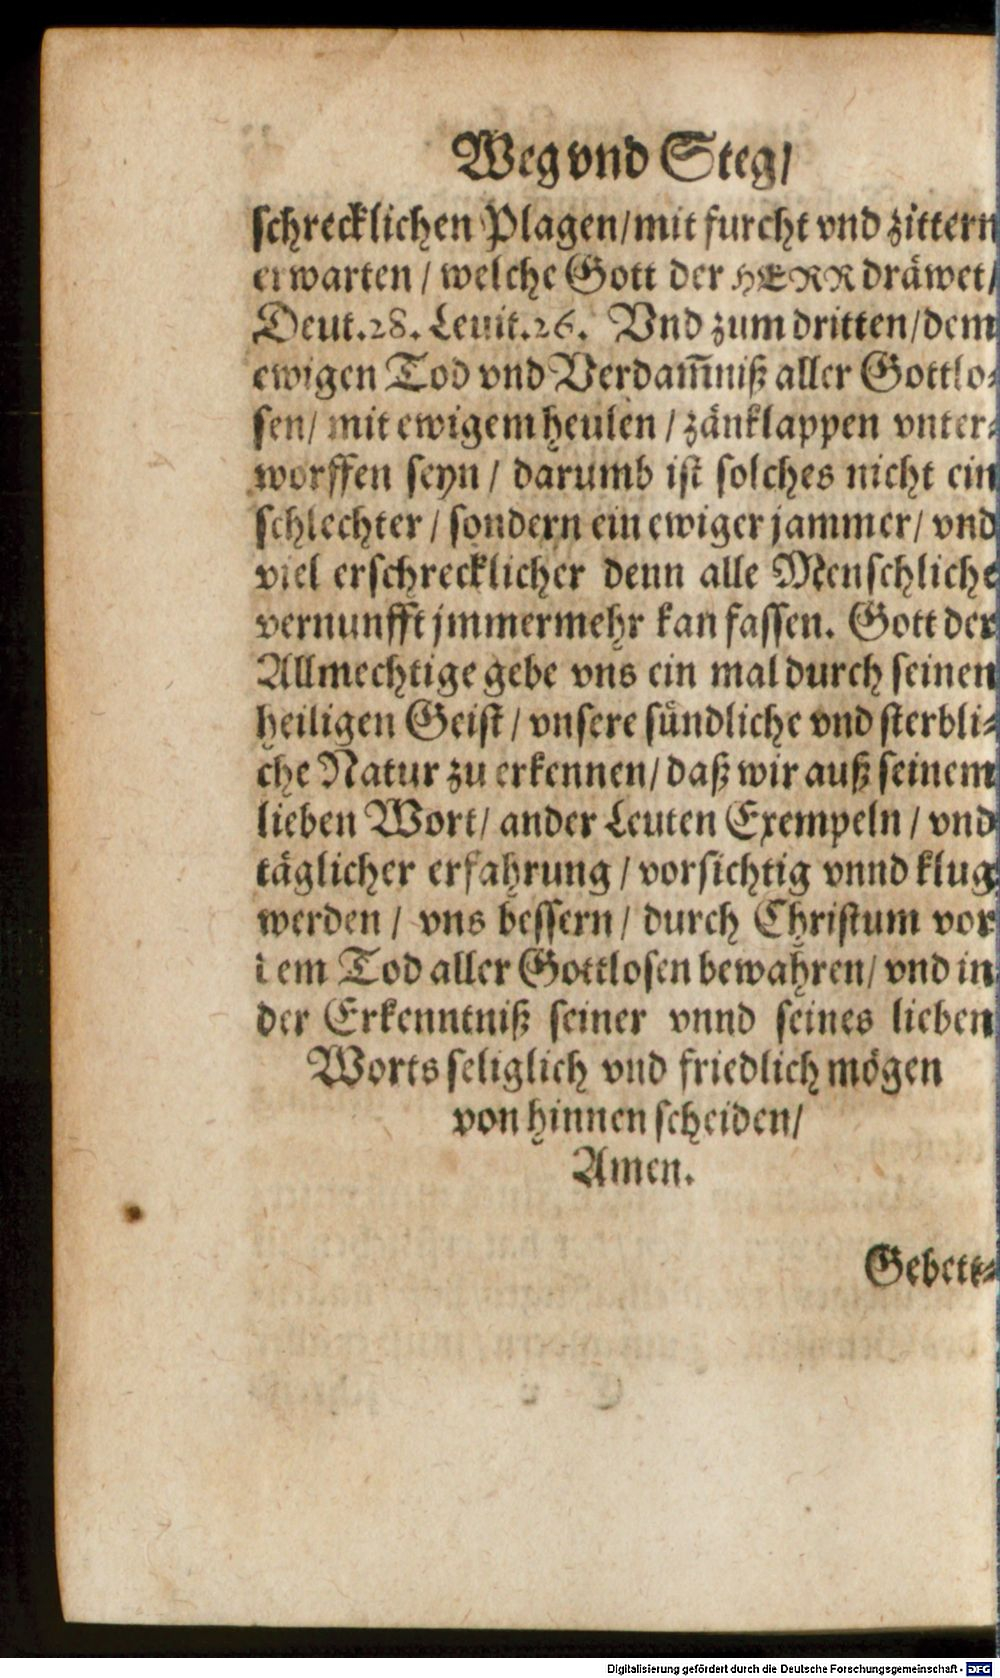 Weg vnd Steg/
schrecklichen Plagen/mit furcht vnd zittern
erwarten / welche Gott der HERR dräwet/
Deut.28. Leuit.26. Vnd zum dritten/dem
ewigen Tod vnd Verdam̃niß aller Gottlo-
sen/ mit ewigem heulen / zänklappen vnter-
worffen seyn / darumb ist solches nicht ein
schlechter / sondern ein ewiger jammer/ vnd
viel erschrecklicher denn alle Menschliche
vernunfft jmmermehr kan fassen. Gott der
Allmechtige gebe vns ein mal durch seinen
heiligen Geist / vnsere sündliche vnd sterbli-
che Natur zu erkennen/ daß wir auß seinem
lieben Wort/ ander Leuten Exempeln / vnd
täglicher erfahrung / vorsichtig vnnd klug
werden / vns bessern / durch Christum vor
dem Tod aller Gottlosen bewahren/ vnd in
der Erkenntniß seiner vnnd seines lieben
Worts seliglich vnd friedlich mögen
von hinnen scheiden/
Amen.
Gebett-
Digitalisierung gefördert durch die Deutsche Forschungsgemeinschaft - DFG